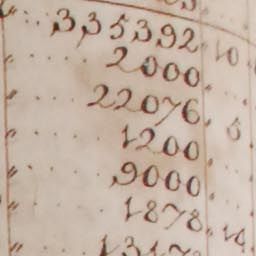 335392. 10
2000
22076. 5
1200
9000
1878. 10